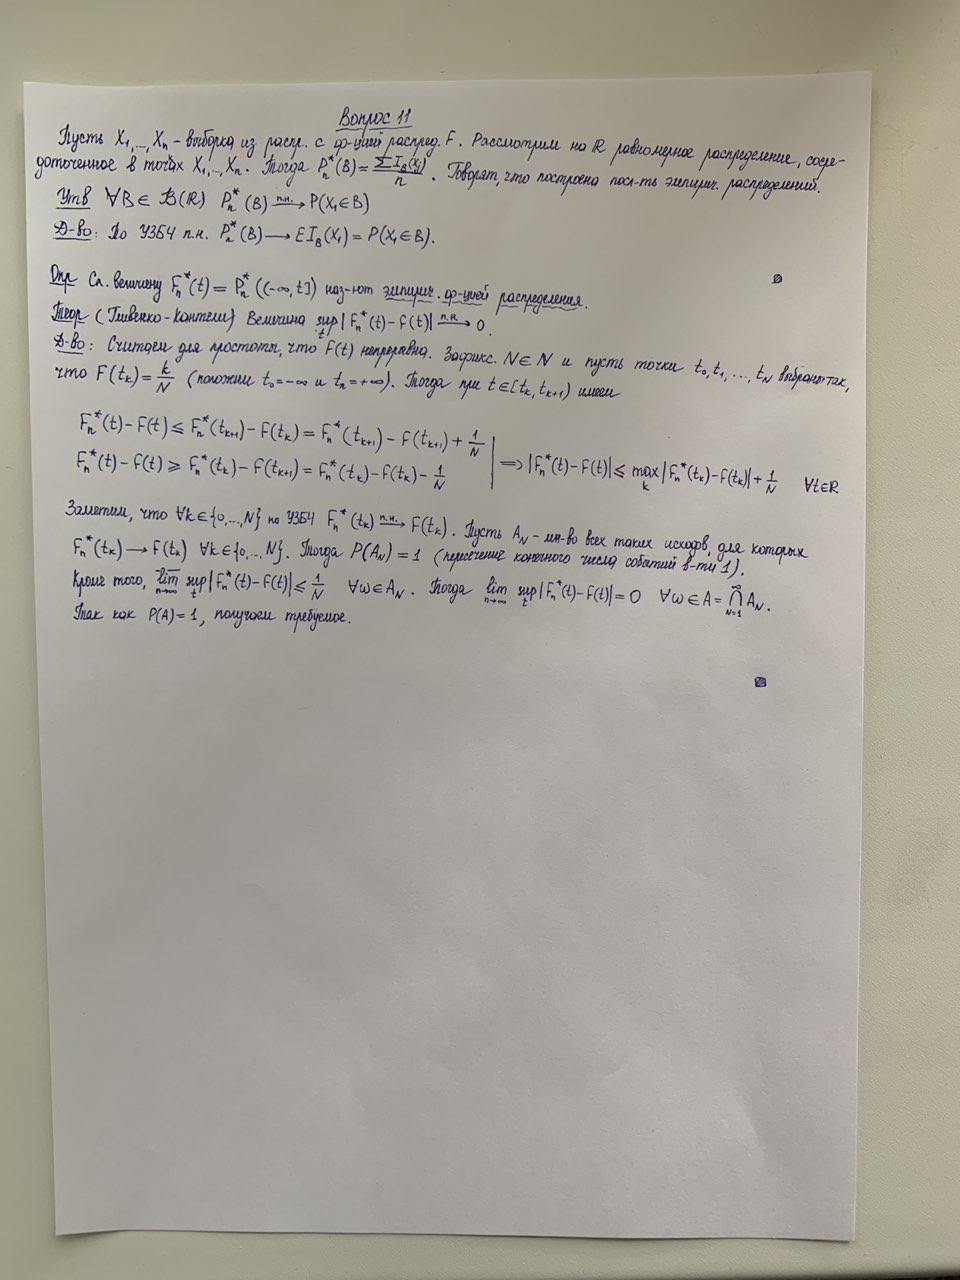 Вопрос 11
Пусть X₁,...,Xₙ - выборка из распр. с ф-цией распред. F. Рассмотрим на ℝ равномерное распределение, сосре-
доточенное в точках X₁,...,Xₙ. Тогда Pₙ*(B) = ∑I_B(Xⱼ)/n. Говорят, что построена посл-ть эмпирич. распределений.
Утв ∀B ∈ 𝓑(ℝ) Pₙ*(B) —п.н.→ P(X₁∈B)
Д-во: По УЗБЧ п.н. Pₙ*(B) → EI_B(X₁) = P(X₁∈B).
Опр Сл. величину Fₙ*(t) = Pₙ*((-∞, t]) наз-ют эмпирич. ф-цией распределения.
Теор (Гливенко-Кантелли) Величина sup_t |Fₙ*(t) - F(t)| —п.н.→ 0.
Д-во: Считаем для простоты, что F(t) непрерывна. Зафикс. N∈ℕ и пусть точки t₀, t₁, ..., t_N выбраны так,
что F(tₖ) = k/N (положим t₀ = -∞ и tₙ = +∞). Тогда при t∈[tₖ, tₖ₊₁) имеем
Fₙ*(t) - F(t) ≤ Fₙ*(tₖ₊₁) - F(tₖ) = Fₙ*(tₖ₊₁) - F(tₖ₊₁) + 1/N
Fₙ*(t) - F(t) ≥ Fₙ*(tₖ) - F(tₖ₊₁) = Fₙ*(tₖ) - F(tₖ) - 1/N | ⇒ |Fₙ*(t) - F(t)| ≤ max_k |Fₙ*(tₖ) - F(tₖ)| + 1/N ∀t∈ℝ
Заметим, что ∀k∈{0,...,N} по УЗБЧ Fₙ*(tₖ) —п.н.→ F(tₖ). Пусть A_N - мн-во всех таких исходов, для которых
Fₙ*(tₖ) → F(tₖ) ∀k∈{0,...,N}. Тогда P(A_N) = 1 (пересечение конечного числа событий в-ти 1).
Кроме того, lim̅_{n→∞} sup_t |Fₙ*(t) - F(t)| ≤ 1/N ∀ω∈A_N. Тогда lim_{n→∞} sup_t |Fₙ*(t) - F(t)| = 0 ∀ω∈A = ⋂_{N=1}^∞ A_N.
Так как P(A) = 1, получаем требуемое.